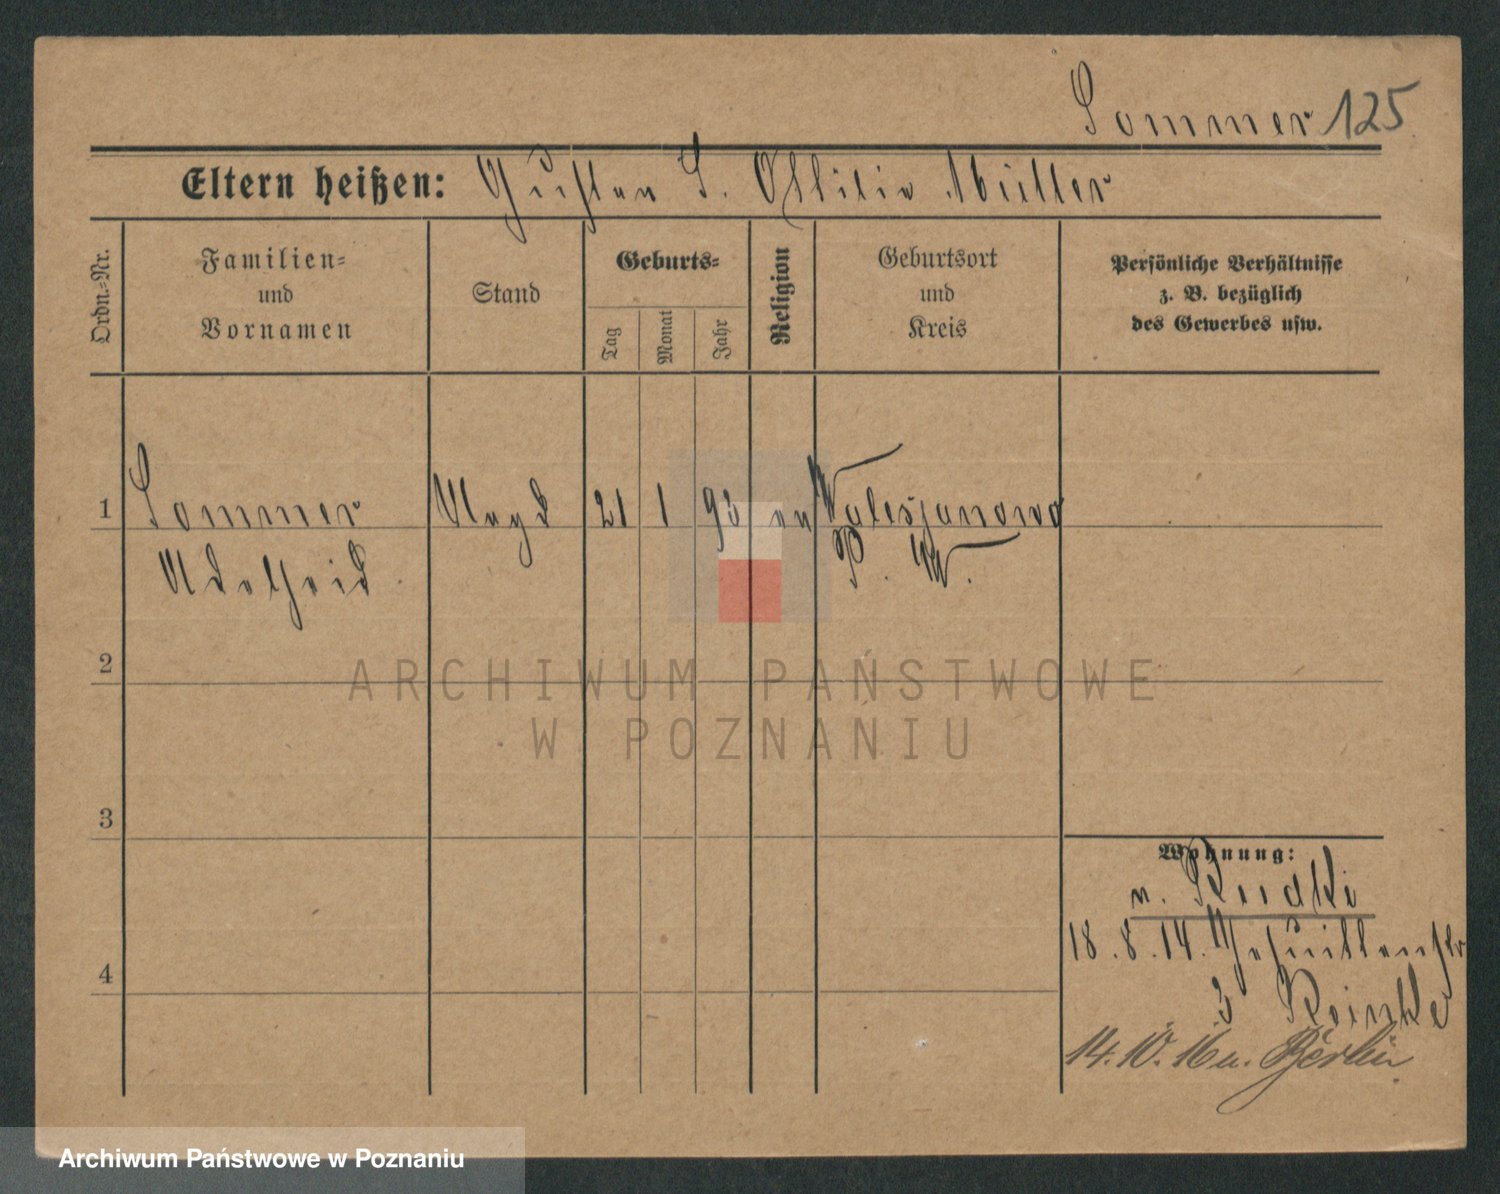 Sommer 125
Eltern heißen: Gustav S. Ottilie Müller
Ordn.-Nr.
Familien-
und
Vornamen
Stand
Geburts-
Tag
Monat
Jahr
Religion
Geburtsort
und
Kreis
Persönliche Verhältnisse
z. B. bezüglich
des Gewerbes usw.
1 Sommer Magd 21 1 93 ev Walesjanowo
Adelheid P. W.
2
3
4
Wohnung:
n.
18.8.14. Jesuitenstr
3
14. 10. 16 n. Berlin
ARCHIWUM PAŃSTWOWE
W POZNANIU
Archiwum Państwowe w Poznaniu